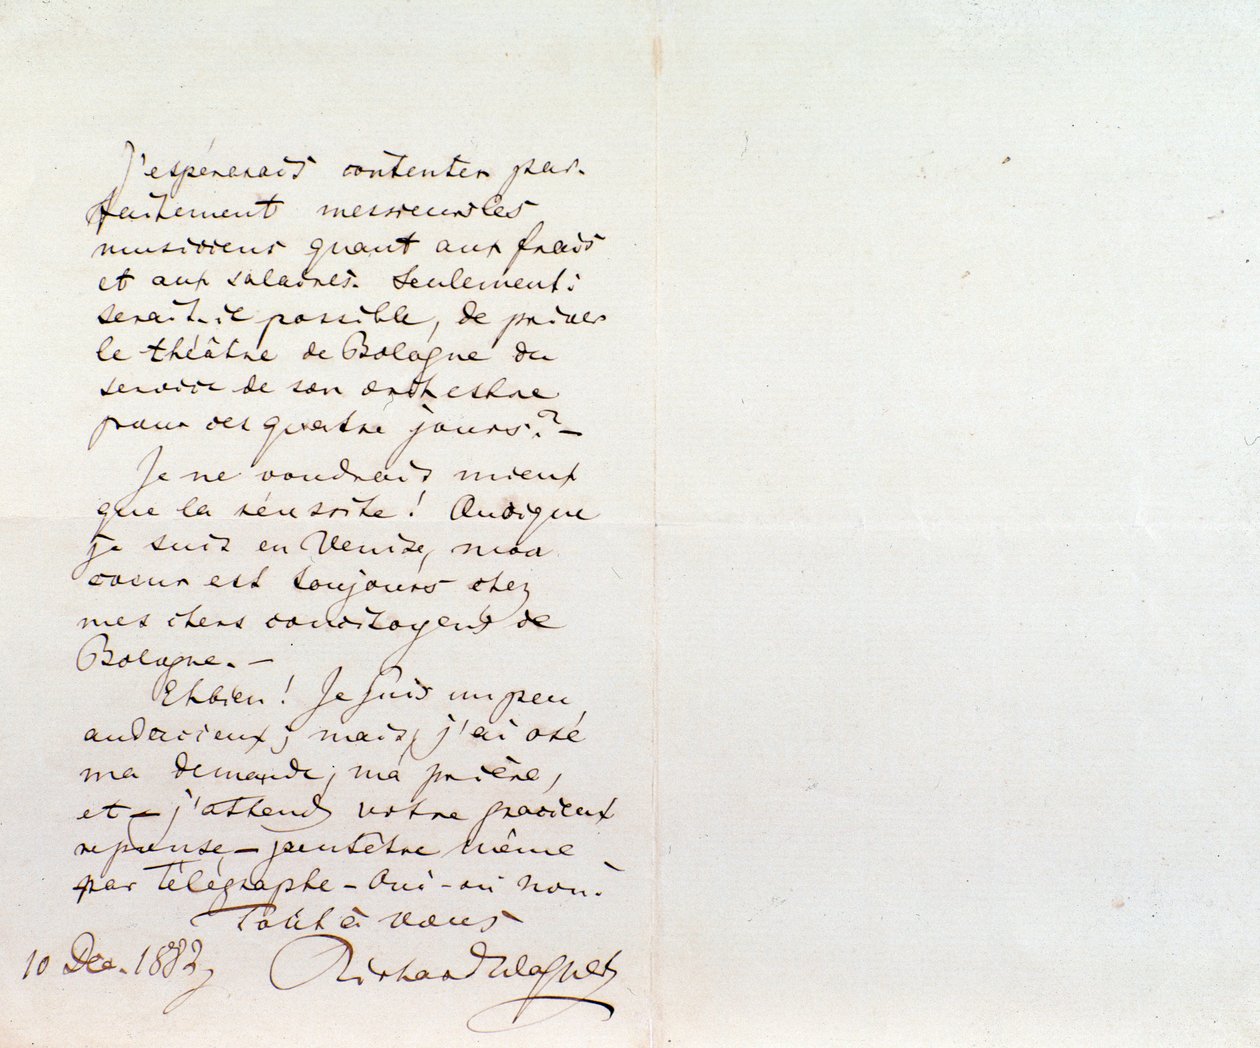 J'espérerais contenter par-
faitement messieurs les
musiciens quant aux frais
et aux salaires. Seulement:
serait-il possible, de priver
le théâtre de Bologne du
service de son orchestre
pour ces quatre jours? —
Je ne voudrais mieux
que la réussite! Quoique
je suis en Venise, mon
coeur est toujours chez
mes chers concitoyens de
Bologne. —
Eh bien! Je suis un peu
audacieux; mais, j'ai osé
ma demande, ma prière,
et — j'attends votre gracieux
reponse, — peutêtre même
par Télégraphe — Oui — ou non.
Tout à vous
10 Dec. 1882, Richard Wagner